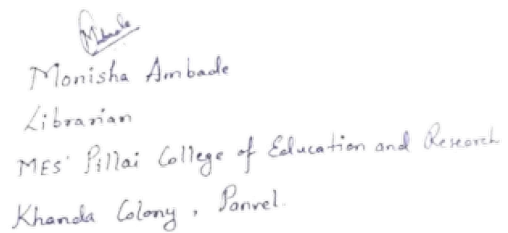 Monisha Ambade
Librarian
MES' Pillai College of Education and Research
Khanda Colony, Panvel.